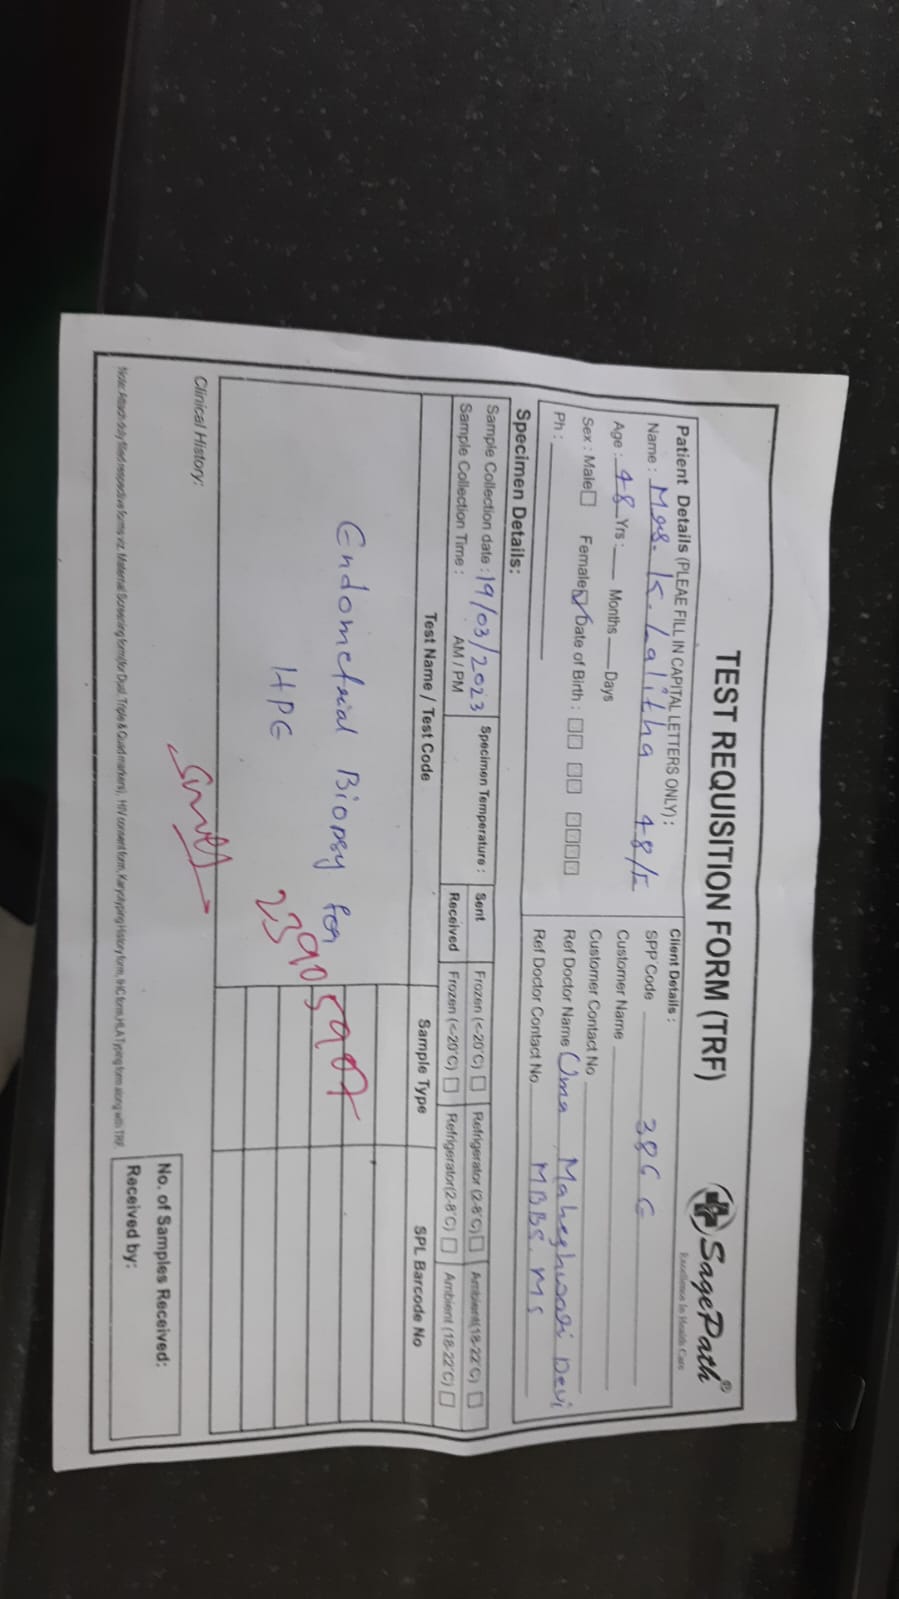 TEST REQUISITION FORM (TRF)
SagePath®
Excellence In Health Care
Patient Details (PLEAE FILL IN CAPITAL LETTERS ONLY):
Name : Mrs. K. Lalitha 48/F
Age : 48 Yrs : Months Days
Sex : Male Female Date of Birth :
Ph :
Client Details :
SPP Code 386 G
Customer Name
Customer Contact No
Ref Doctor Name Uma Maheshwari Devi
Ref Doctor Contact No MBBS. MS
Specimen Details:
Sample Collection date : 19/03/2023
Sample Collection Time : AM / PM
Specimen Temperature : Sent Frozen (<-20°C) Refrigerator (2-8°C) Ambient(18-22°C)
Received Frozen (<-20°C) Refrigerator(2-8°C) Ambient (18-22°C)
Test Name / Test Code Sample Type SPL Barcode No
Endometrial Biopsy for
HPE
23905907
Clinical History:
No. of Samples Received:
Received by:
Note: Attach duly filled respective forms viz. Maternal Screening form(for Dual, Triple & Quad markers), HIV consent form, Karyotyping History form, IHC form, HLA Typing form along with TRF